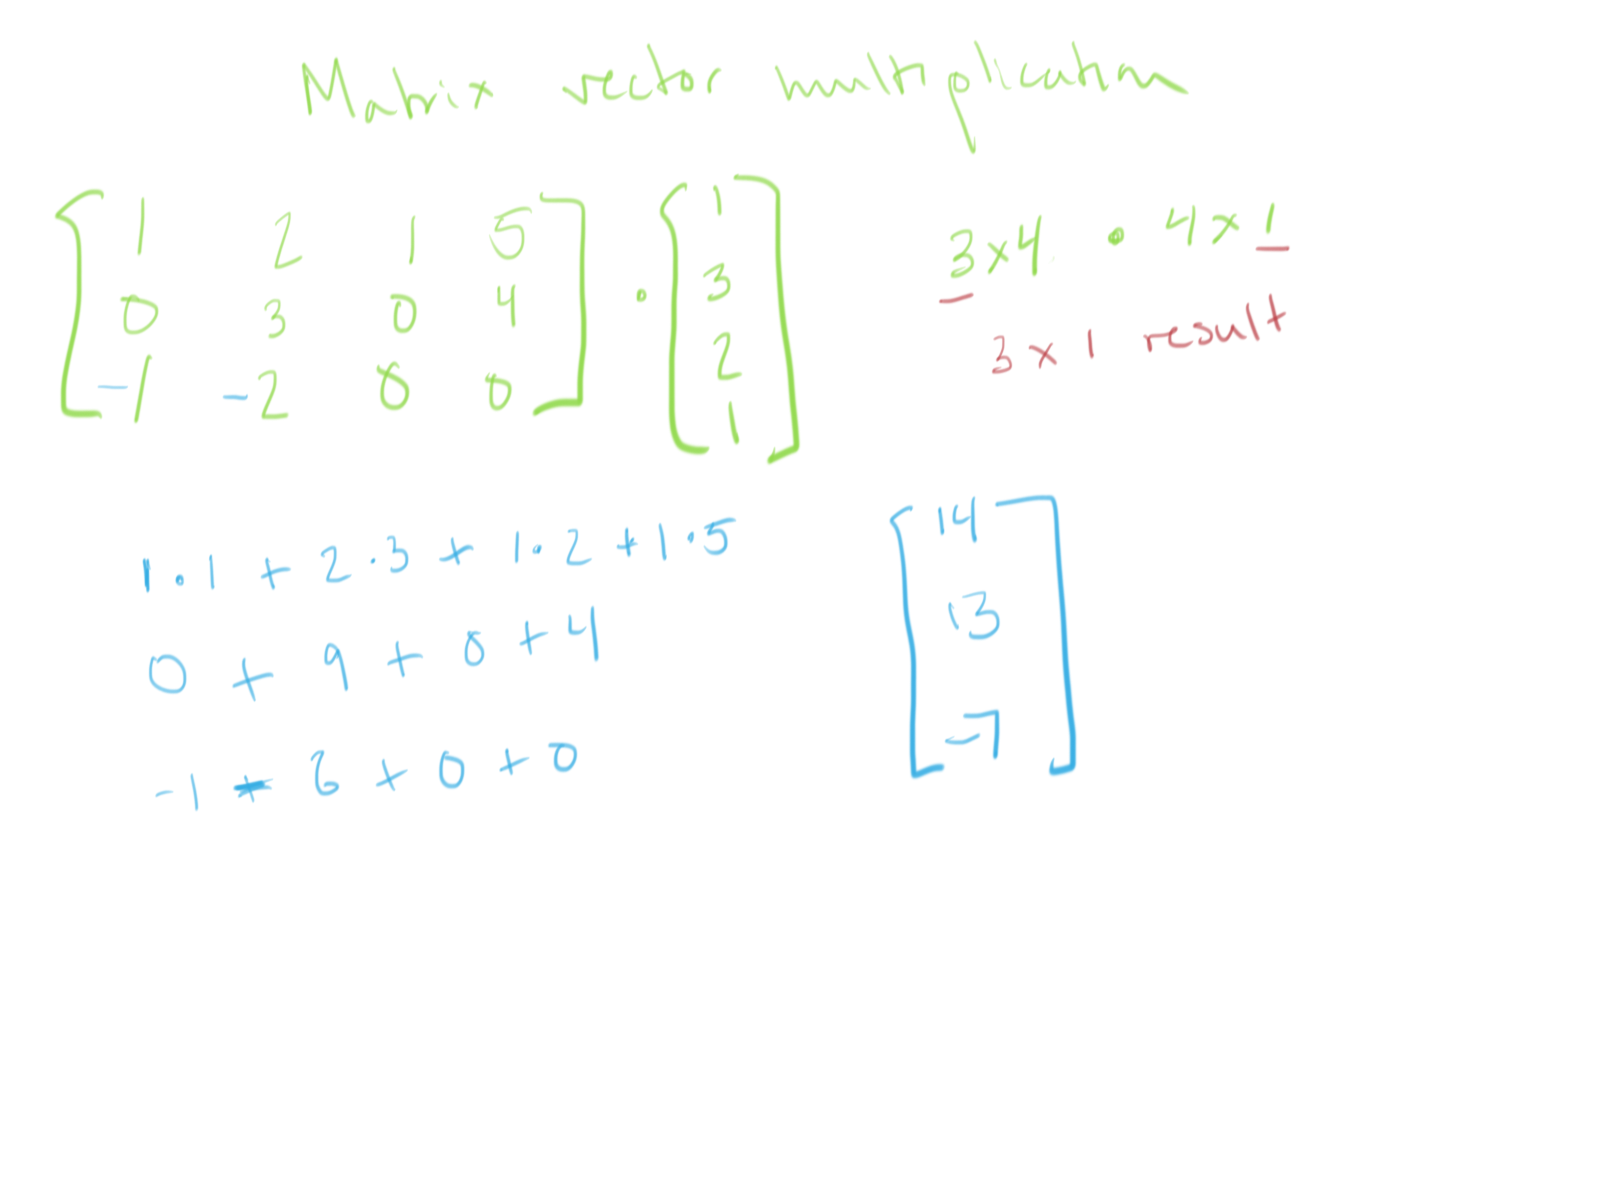 Matrix vector multiplication
1 2 1 5
0 3 0 4
-1 -2 0 0
·
1
3
2
1
3x4 · 4x1
3x1 result
1·1 + 2·3 + 1·2 + 1·5
0 + 9 + 0 + 4
-1 - 6 + 0 + 0
14
13
-7